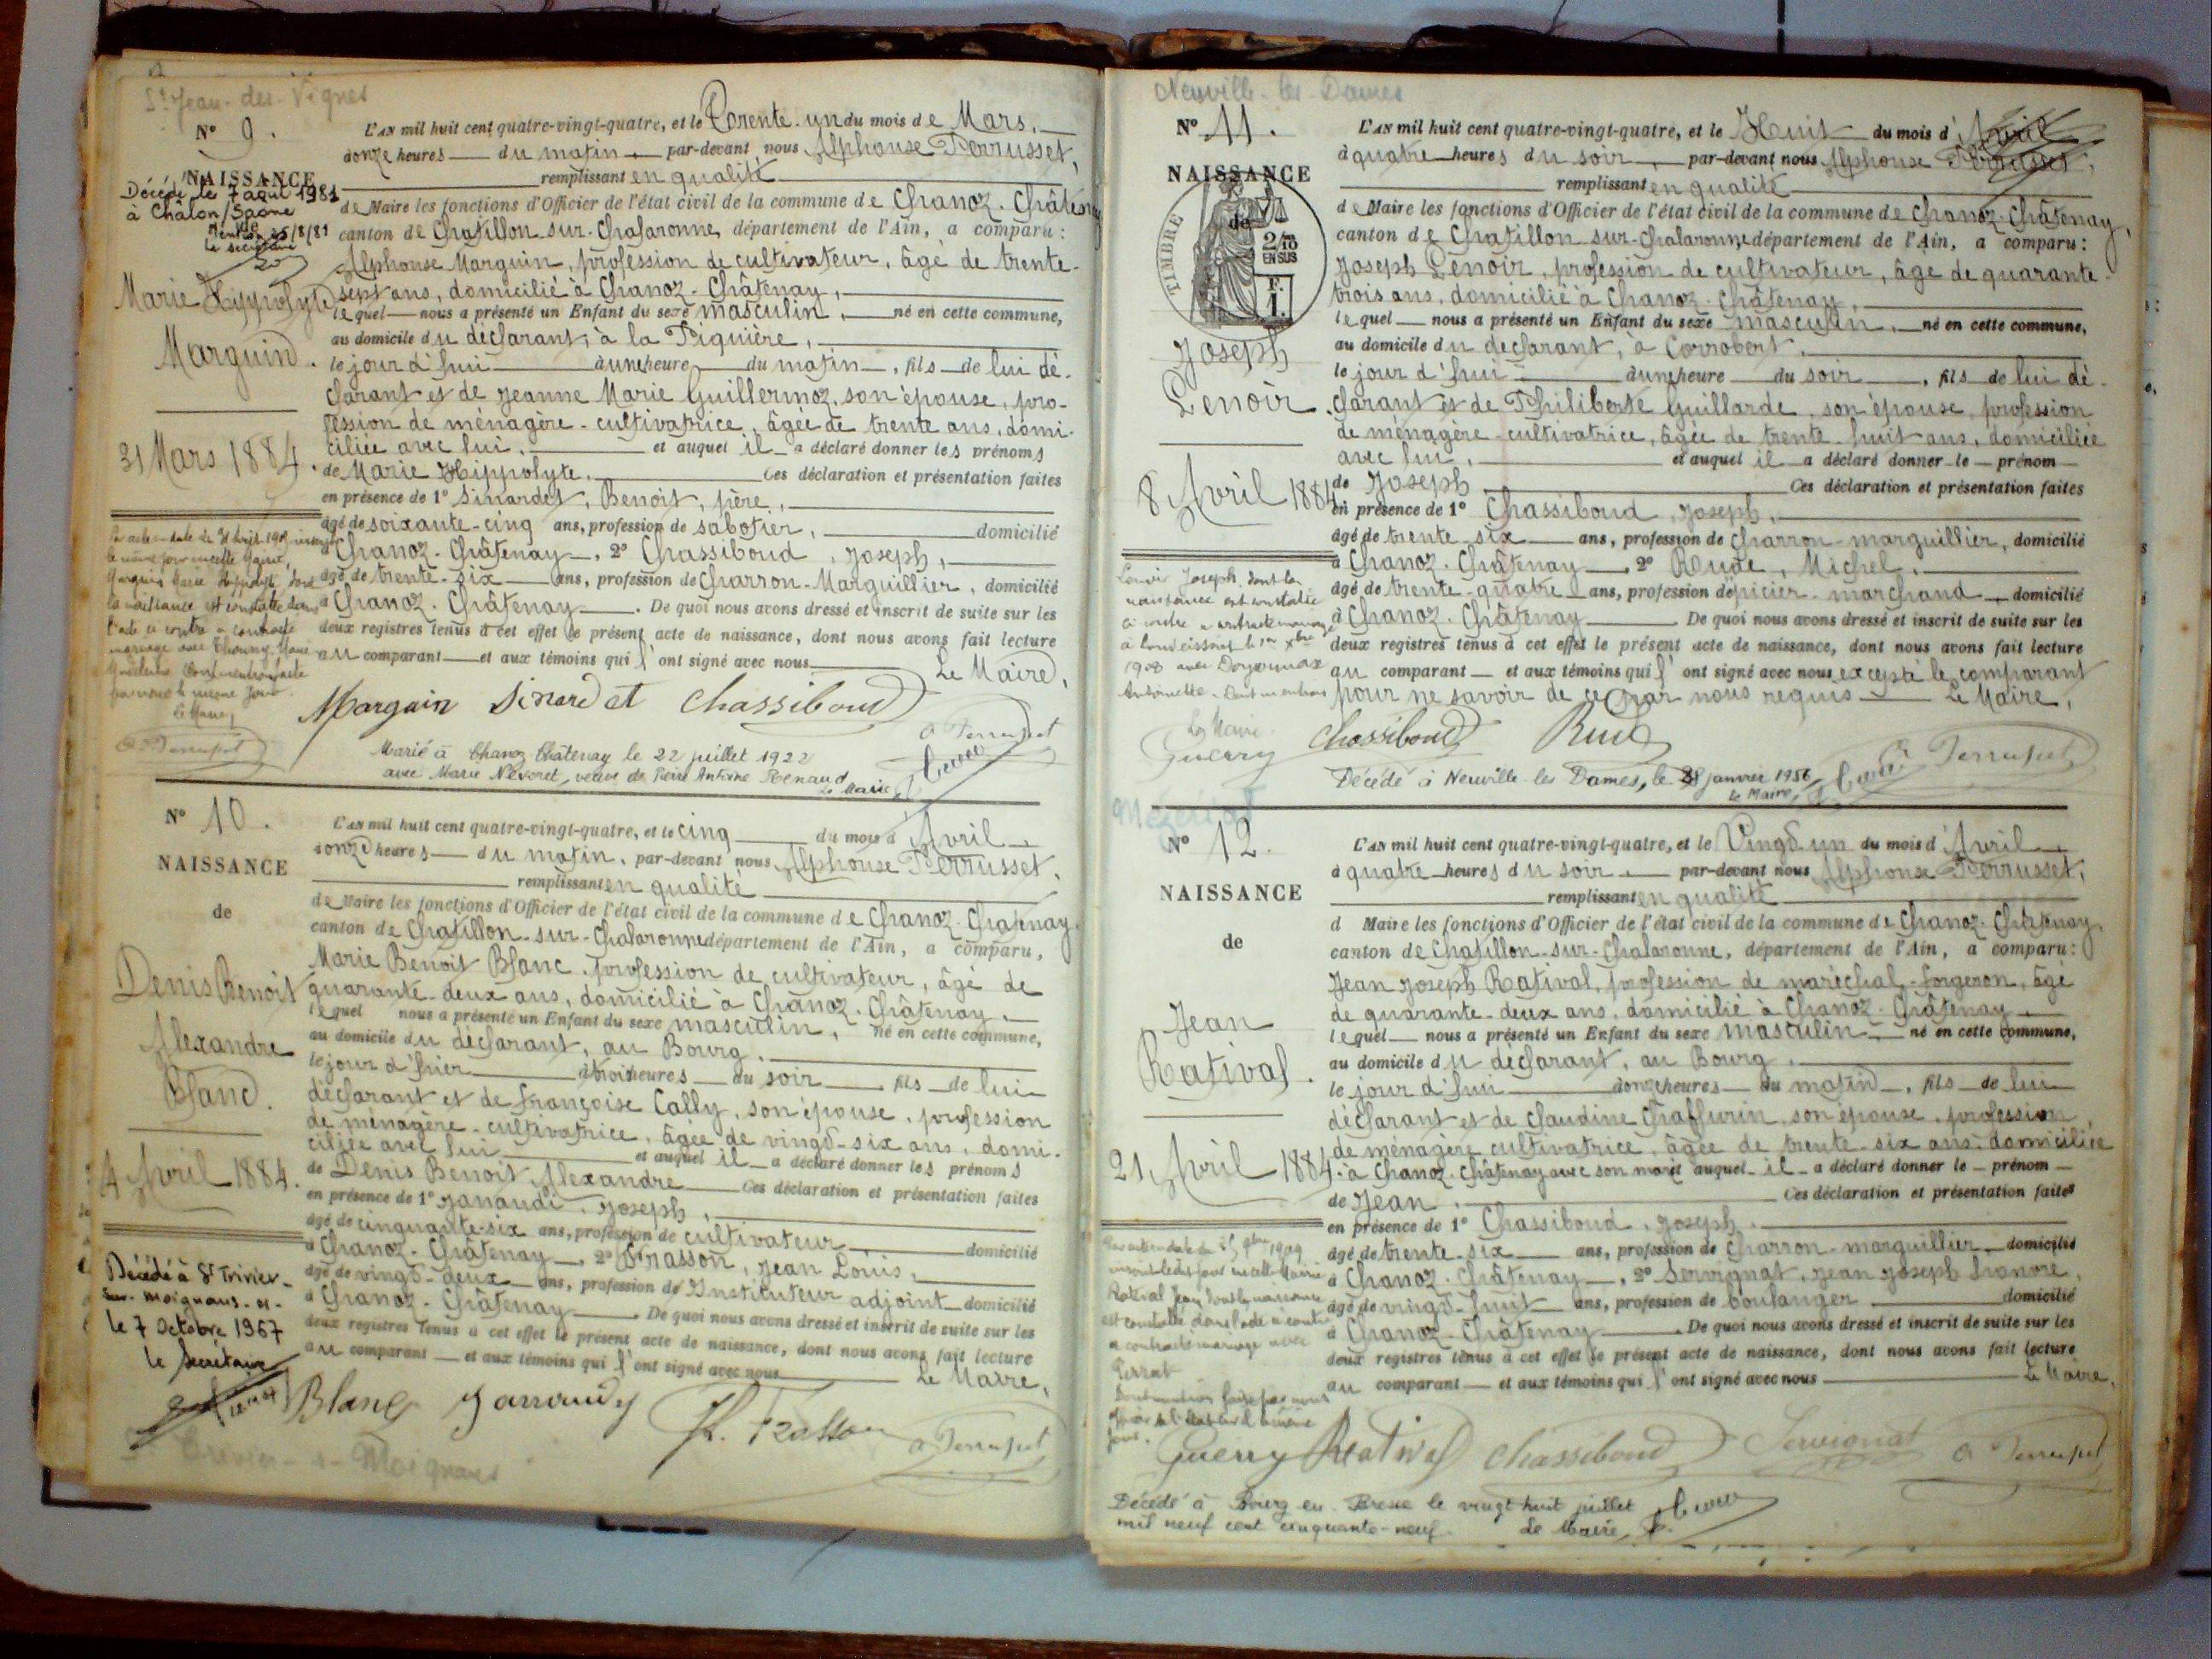 St Jean-des-Vignes
N° 9.
NAISSANCE
Décédé le 7 aout 1981
à Châlon/Saône
Mention 25/8/81
le secrétaire
Marie Hyppolyte
Marguin.
31 Mars 1884.
L'AN mil huit cent quatre-vingt-quatre, et le Trente-un du mois de Mars,
à onze heures du matin, par-devant nous Alphonse Perrusset,
remplissant en qualité
de Maire les fonctions d'Officier de l'état civil de la commune de Chanoz-Châtenay
canton de Chatillon-sur-Chalaronne, département de l'Ain, a comparu:
Alphonse Marguin, profession de cultivateur, âgé de trente-
sept ans, domicilié à Chanoz-Châtenay,
lequel nous a présenté un Enfant du sexe masculin, né en cette commune,
au domicile du déclarant, à la Piquière,
le jour d'hui à une heure du matin, fils de lui dé-
clarant et de Jeanne Marie Guillermoz, son épouse, pro-
fession de ménagère-cultivatrice, âgée de trente ans, domi-
ciliée avec lui, et auquel il a déclaré donner les prénoms
de Marie Hippolyte. Ces déclaration et présentation faites
en présence de 1° Sinardet, Benoît, père,
âgé de soixante-cinq ans, profession de sabotier, domicilié
à Chanoz-Châtenay, 2° Chassiboud, Joseph,
âgé de trente-six ans, profession de Charron-Marguillier, domicilié
à Chanoz-Châtenay. De quoi nous avons dressé et inscrit de suite sur les
deux registres tenus à cet effet le présent acte de naissance, dont nous avons fait lecture
au comparant et aux témoins qui l'ont signé avec nous
Le Maire,
Marguin Sinardet Chassiboud
a Perrusset
Marié à Chanoz Châtenay le 22 juillet 1922
avec Marie Névoret, veuve de Pierre Antoine Renaud
Le Maire
le même jour en cette Mairie,
Marguin Marie Hippolyte dont
la naissance est constatée dans
l'acte ci contre a contracté
mariage avec
par nous le même jour
Le Maire,
a Perrusset
N° 10.
NAISSANCE
de
Denis Benoit
Alexandre
Blanc.
4 Avril 1884.
L'AN mil huit cent quatre-vingt-quatre, et le cinq du mois d'Avril
à onze heures du matin, par-devant nous Alphonse Perrusset,
remplissant en qualité
de Maire les fonctions d'Officier de l'état civil de la commune de Chanoz-Chatenay
canton de Chatillon-sur-Chalaronne département de l'Ain, a comparu,
Marie Benoit Blanc, profession de cultivateur, âgé de
quarante-deux ans, domicilié à Chanoz-Châtenay,
lequel nous a présenté un Enfant du sexe masculin, né en cette commune,
au domicile du déclarant, au Bourg,
le jour d'hier à trois heures du soir, fils de lui
déclarant et de Françoise Cally, son épouse, profession
de ménagère-cultivatrice, âgée de vingt-six ans, domi-
ciliée avec lui et auquel il a déclaré donner les prénoms
de Denis Benoit Alexandre Ces déclaration et présentation faites
en présence de 1° Janaudi, Joseph,
âgé de cinquante-six ans, profession de cultivateur domicilié
à Chanoz-Châtenay, 2° Frasson, Jean Louis,
âgé de vingt-deux ans, profession de Instituteur adjoint domicilié
à Chanoz-Châtenay. De quoi nous avons dressé et inscrit de suite sur les
deux registres tenus à cet effet le présent acte de naissance, dont nous avons fait lecture
au comparant et aux témoins qui l'ont signé avec nous
Le Maire,
Décédé à St Trivier-
sur-moignans-et-
le 7 octobre 1967
le Secrétaire
Blanc Janaudy a Perrusset
St Trivier-s-Moignans
Neuville-les-Dames
N° 11.
NAISSANCE
de
TIMBRE
2/10
EN SUS
F.
1.
Joseph
Lenoir.
8 Avril 1884
L'AN mil huit cent quatre-vingt-quatre, et le Huit du mois d'Avril
à quatre heures du soir, par-devant nous Alphonse Perrusset,
remplissant en qualité
de Maire les fonctions d'Officier de l'état civil de la commune de Chanoz-Châtenay,
canton de Chatillon-sur-Chalaronne département de l'Ain, a comparu:
Joseph Lenoir, profession de cultivateur, âgé de quarante-
trois ans, domicilié à Chanoz-Châtenay,
lequel nous a présenté un Enfant du sexe masculin, né en cette commune,
au domicile du déclarant, à Corrobert,
le jour d'hui à une heure du soir, fils de lui dé-
clarant et de Philiberte Guillarde, son épouse, profession
de ménagère-cultivatrice, âgée de trente-huit ans, domiciliée
avec lui, et auquel il a déclaré donner le prénom
de Joseph Ces déclaration et présentation faites
en présence de 1° Chassiboud, Joseph,
âgé de trente six ans, profession de Charron-marguillier, domicilié
à Chanoz-Châtenay, 2° Rude, Michel,
âgé de trente-quatre ans, profession d'épicier-marchand, domicilié
à Chanoz-Châtenay. De quoi nous avons dressé et inscrit de suite sur les
deux registres tenus à cet effet le présent acte de naissance, dont nous avons fait lecture
au comparant et aux témoins qui l'ont signé avec nous excepté le comparant
pour ne savoir de ce par nous requis Le Maire,
Lenoir Joseph, dont la
naissance est constatée
ci contre a contracté mariage
1908 avec
Antoinette.
Le Maire
Guerry
Chassiboud Rude a Perrusset
Décédé à Neuville les Dames, le 28 janvier 1956
Le Maire,
Mézériat
N° 12.
NAISSANCE
de
Jean
Rativat.
21 Avril 1884.
L'AN mil huit cent quatre-vingt-quatre, et le Vingt-un du mois d'Avril
à quatre heures du soir par-devant nous Alphonse Perrusset,
remplissant en qualité
d Maire les fonctions d'Officier de l'état civil de la commune de Chanoz-Châtenay,
canton de Chatillon-sur-Chalaronne, département de l'Ain, a comparu:
Jean Joseph Rativat, profession de maréchal-forgeron, âgé
de quarante-deux ans, domicilié à Chanoz-Châtenay
lequel nous a présenté un Enfant du sexe masculin né en cette commune,
au domicile du déclarant, au Bourg,
le jour d'hui à onze heures du matin, fils de lui
déclarant et de Claudine Chaffurin, son épouse, profession
de ménagère cultivatrice, âgée de trente-six ans, domiciliée
à Chanoz-Châtenay avec son mari et auquel il a déclaré donner le prénom
de Jean, Ces déclaration et présentation faites
en présence de 1° Chassiboud, Joseph,
âgé de trente-six ans, profession de Charron-marguillier domicilié
à Chanoz-Châtenay, 2° Servignat, Jean Joseph Honoré,
âgé de vingt-huit ans, profession de boulanger domicilié
à Chanoz-Châtenay. De quoi nous avons dressé et inscrit de suite sur les
deux registres tenus à cet effet le présent acte de naissance, dont nous avons fait lecture
au comparant et aux témoins qui l'ont signé avec nous
Le Maire,
Rativat Jean dont la naissance
est constatée dans l'acte ci contre
a contracté mariage avec
Perrat
Guerry Rativat Chassiboud Servignat a Perrusset
Décédé à Bourg en Bresse le vingt huit juillet
mil neuf cent cinquante-neuf. Le Maire,